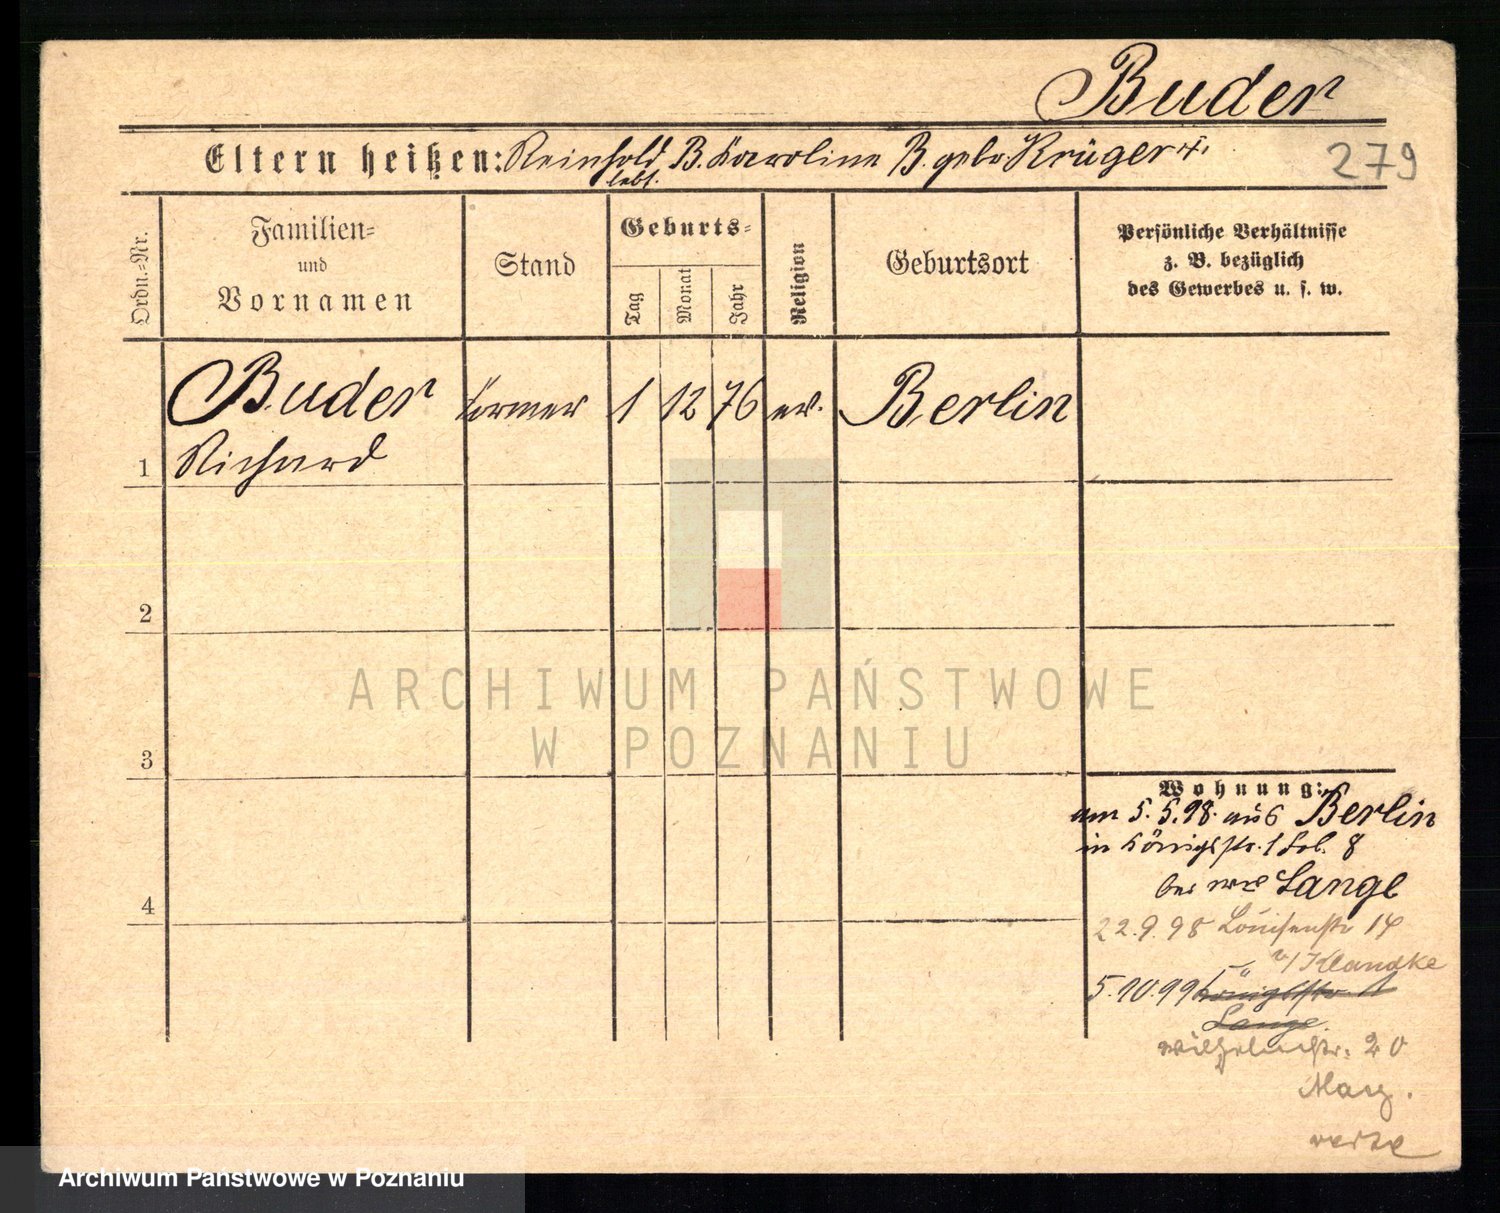 Buder
Eltern heißen: Reinhold B. Karoline B. geb. Krüger
lebt.
279
Ordn.=Nr.
Familien=
und
Vornamen
Stand
Geburts=
Tag
Monat
Jahr
Religion
Geburtsort
Persönliche Verhältnisse
z. B. bezüglich
des Gewerbes u. s. w.
Buder
Richard
1 12 76 ev. Berlin
1
2
3
4
ARCHIWUM PAŃSTWOWE
W POZNANIU
Wohnung:
am 5.5.98. aus Berlin
in Königstr. 1 8
bei Lange
22.9.98 Louisenstr 14
b/ Klandke
5.10.99 Königstr 1
Lange.
Wilhelmstr. 20
Archiwum Państwowe w Poznaniu